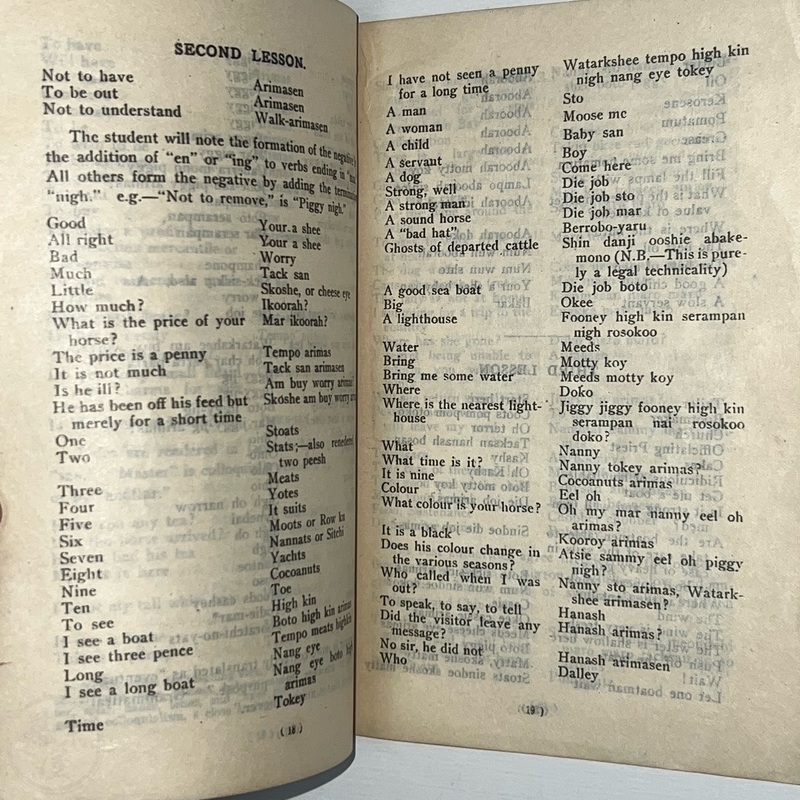 SECOND LESSON.
Not to have Arimasen
To be out Arimasen
Not to understand Walk-arimasen
The student will note the formation of the negative
the addition of "en" or "ing" to verbs ending in
All others form the negative by adding the
"nigh." e.g.—"Not to remove," is "Piggy nigh."
Good Your a shee
All right Your a shee
Bad Worry
Much Tack san
Little Skoshe, or cheese eye
How much? Ikoorah?
What is the price of your Mar ikoorah?
horse?
The price is a penny Tempo arimas
It is not much Tack san arimasen
Is he ill? Am buy worry arimas?
He has been off his feed but Skoshe am buy worry
merely for a short time
One Stoats
Two Stats;—also
two peesh
Three Meats
Four Yotes
Five It suits
Six Moots or Row ku
Seven Nannats or Sitchi
Eight Yachts
Nine Cocoanuts
Ten Toe
To see High kin
I see a boat Boto high kin arimas
I see three pence Tempo meats high kin
Long Nang eye
I see a long boat Nang eye boto
arimas
Time Tokey
( 18 )
I have not seen a penny Watarkshee tempo high kin
for a long time nigh nang eye tokey
A man Sto
A woman Moose me
A child Baby san
A servant Boy
A dog Come here
Strong, well Die job
A strong man Die job sto
A sound horse Die job mar
A "bad hat" Berrobo-yaru
Ghosts of departed cattle Shin danji ooshie abake-
mono (N.B.—This is pure-
ly a legal technicality)
A good sea boat Die job boto
Big Okee
A lighthouse Fooney high kin serampan
nigh rosokoo
Water Meeds
Bring Motty koy
Bring me some water Meeds motty koy
Where Doko
Where is the nearest light- Jiggy jiggy fooney high kin
house serampan nai rosokoo
doko?
What Nanny
What time is it? Nanny tokey arimas?
It is nine Cocoanuts arimas
Colour Eel oh
What colour is your horse? Oh my mar nanny eel oh
arimas?
It is a black Kooroy arimas
Does his colour change in Atsie sammy eel oh piggy
the various seasons? nigh?
Who called when I was Nanny sto arimas, Watark-
out? shee arimasen?
To speak, to say, to tell Hanash
Did the visitor leave any Hanash arimas?
message?
No sir, he did not Hanash arimasen
Who Dalley
( 19 )